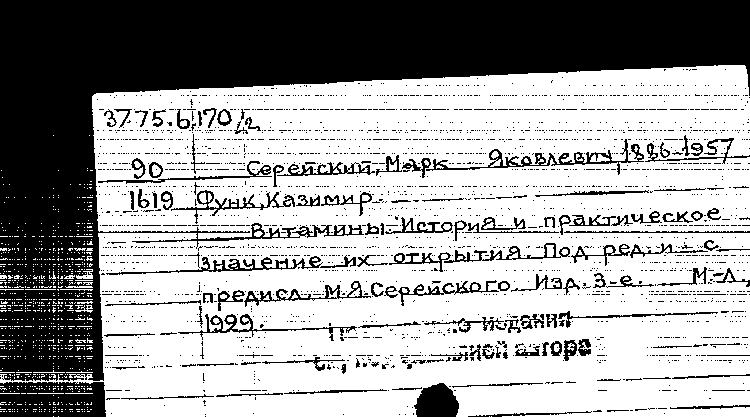 3775.6.170/2
90 Серейский, Марк Яковлевич, 1886-1957
1619 Функ, Казимир.
Витамины. История и практическое
значение их открытия. Под ред. и с
предисл. М.Я. Серейского. Изд. 3-е. М.-Л.,
1929.
издания
автора